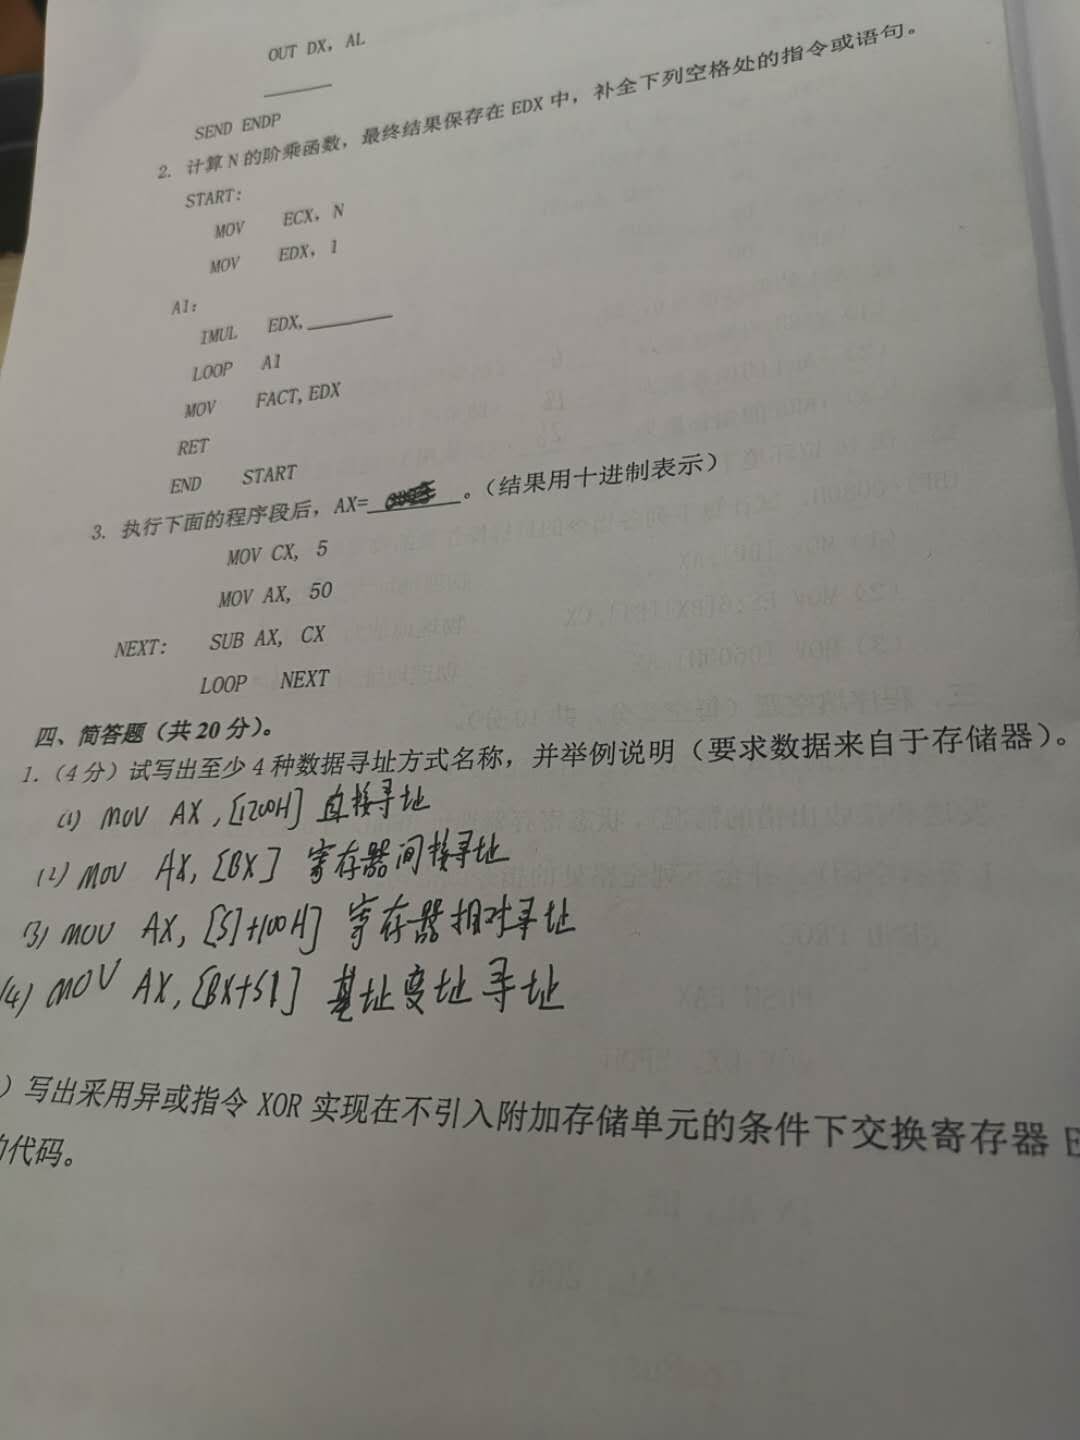 OUT DX, AL
SEND ENDP
2. 计算 N 的阶乘函数，最终结果保存在 EDX 中，补全下列空格处的指令或语句。
START:
MOV ECX, N
MOV EDX, 1
A1:
IMUL EDX,________
LOOP A1
MOV FACT, EDX
RET
END START
3. 执行下面的程序段后，AX=________。（结果用十进制表示）
MOV CX, 5
MOV AX, 50
NEXT: SUB AX, CX
LOOP NEXT
四、简答题（共 20 分）。
1.（4 分）试写出至少 4 种数据寻址方式名称，并举例说明（要求数据来自于存储器）。
(1) MOV AX, [1200H] 直接寻址
(2) MOV AX, [BX] 寄存器间接寻址
(3) MOV AX, [SI+100H] 寄存器相对寻址
(4) MOV AX, [BX+SI] 基址变址寻址
）写出采用异或指令 XOR 实现在不引入附加存储单元的条件下交换寄存器 E
的代码。